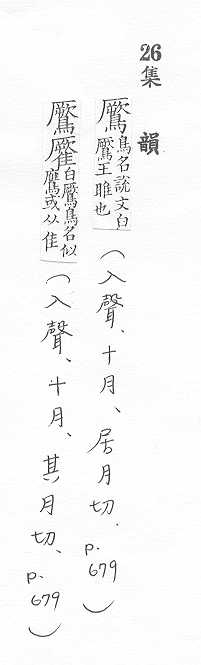 26集韻
鷢鳥名說文白鷢王雎也(入聲、十月、居月切. p.679)
鷢白鷢鳥名似鷹或从隹(入聲、十月、其月切、p.679)